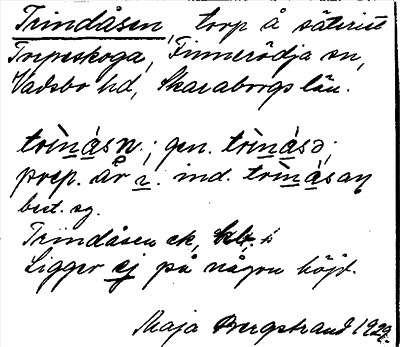 Trindåsen, torp å säteriet
Torpeskoga, Finnerödja sn,
Vadsbo hd, Skaraborgs län.
trìnásn.; gen. trìnásə;
prep. år ɪ. ind. trìnásaŋ
best. sg.
Trindåsen ek,
Ligger ej på någon höjd.
Maja Bergstrand 1929.